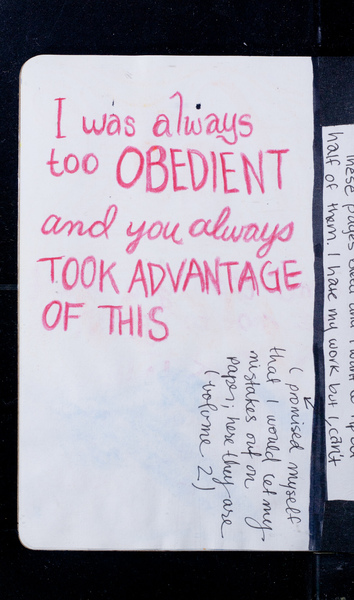 I was always
too OBEDIENT
and you always
TOOK ADVANTAGE
OF THIS
(promised myself
that I would let my
mistakes out on
paper; here they are
(volume 2)
these pages
half of them. I hate my work but I can't